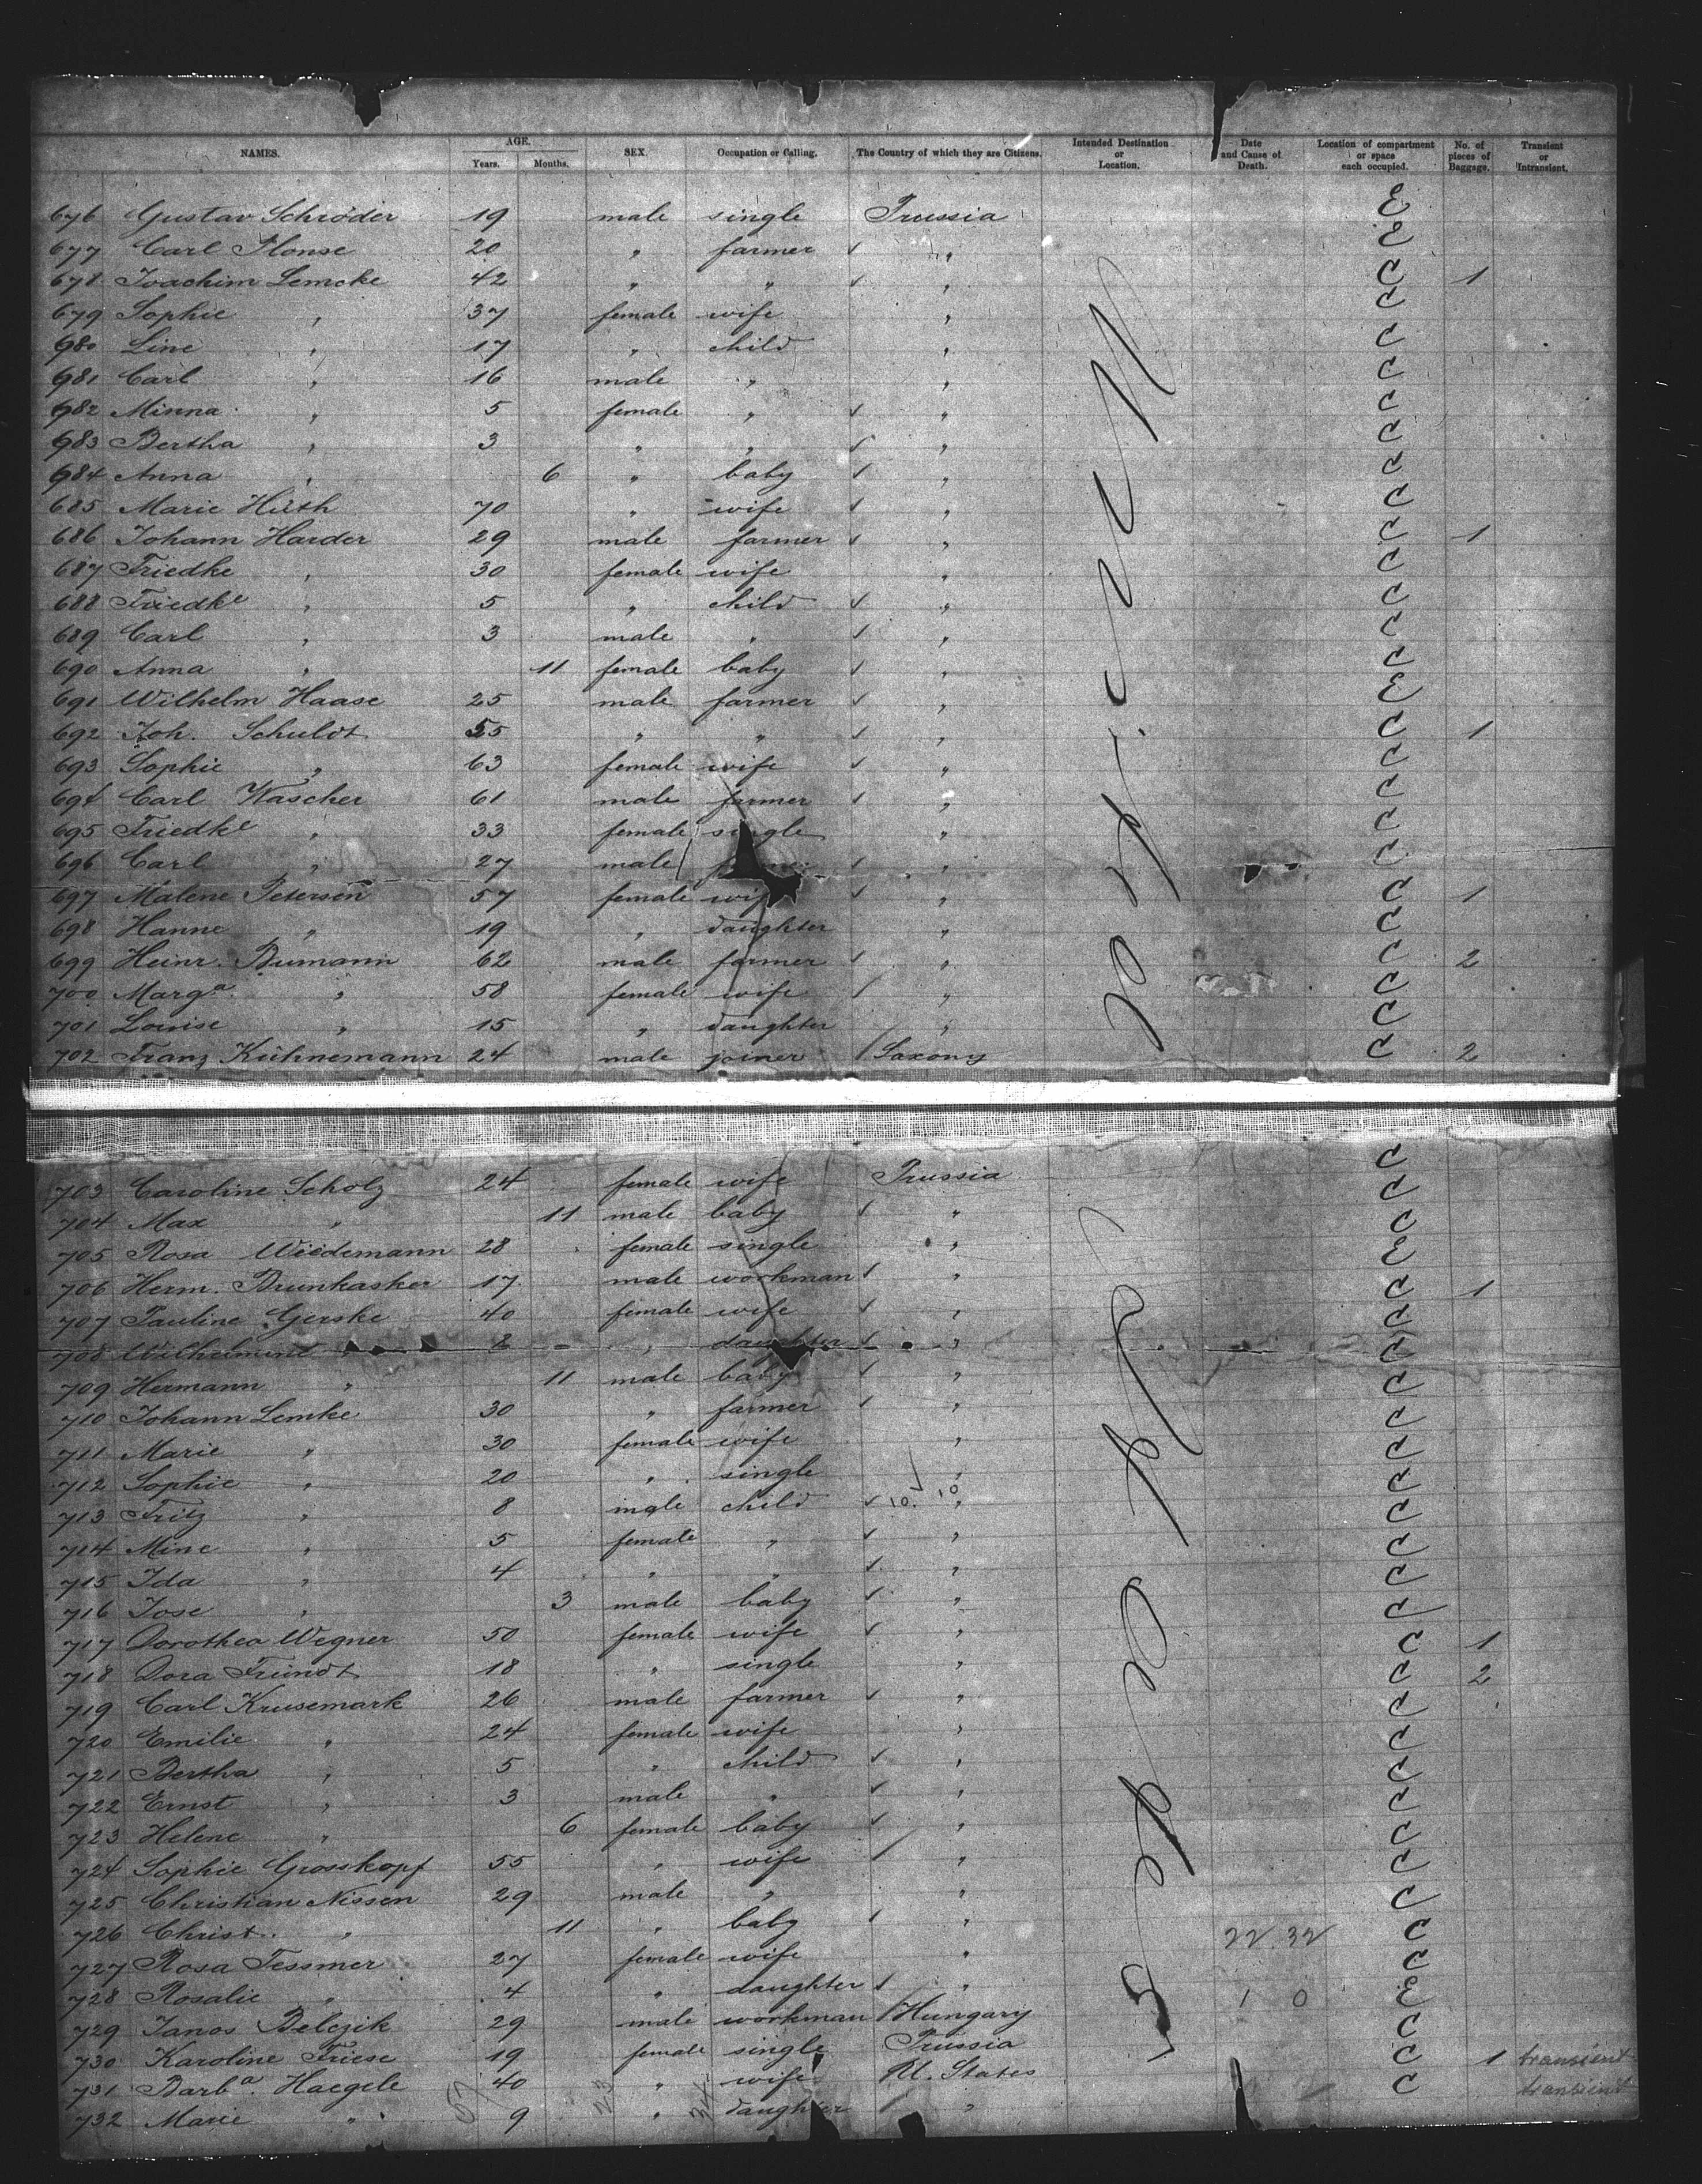 NAMES. AGE. Years. Months. SEX. Occupation or Calling. The Country of which they are Citizens. Intended Destination or Location. Date and Cause of Death. Location of compartment or space each occupied. No. of pieces of Baggage. Transient or Intransient.
676 Gustav Schröder 19 male single Prussia E
677 Carl Plonse 20 " farmer " E
678 Joachim Lemcke 42 " " " C 1
679 Sophie " 37 female wife " C
680 Line " 17 " child " C
681 Carl " 16 male " " C
682 Minna " 5 female " " C
683 Bertha " 3 " " " C
684 Anna " 6 " baby " C
685 Marie Hüth 70 " wife " C
686 Johann Harder 29 male farmer " C 1
687 Friedke " 30 female wife " C
688 Friedke " 5 " child " C
689 Carl " 3 male " " C
690 Anna " 11 female baby " C
691 Wilhelm Haase 25 male farmer " E
692 Joh. Schuldt 55 " " " C 1
693 Sophie " 63 female wife " C
694 Carl Wascher 61 male farmer " C
695 Friedke " 33 female single " C
696 Carl " 27 male " C
697 Malene Petersen 57 female wife " C 1
698 Hanne " 19 " daughter " C
699 Heinr. Bumann 62 male farmer " C 2
700 Marga. " 58 female wife " C
701 Louise " 15 " daughter " C
702 Franz Kühnemann 24 male joiner Saxony C 2
703 Caroline Scholz 24 female wife Prussia C
704 Max " 11 male baby " C
705 Rosa Wiedemann 28 female single " C
706 Herm. Brunkasker 17 male workman " E
707 Pauline Gerske 40 female wife " C 1
708 Wilhelmine " 2 " daughter " C
709 Hermann " 11 male baby " C
710 Johann Lemke 30 " farmer " C
711 Marie " 30 female wife " C
712 Sophie " 20 " single " C
713 Fritz " 8 male child 10. 10 " C
714 Mine " 5 female " " C
715 Ida " 4 " " " C
716 Jose " 3 male baby " C
717 Dorothea Wegner 50 female wife " C 1
718 Dora Fründt 18 " single " C 2
719 Carl Krusemark 26 male farmer " C
720 Emilie " 24 female wife " C
721 Bertha " 5 " child " C
722 Ernst " 3 male " " C
723 Helene " 6 female baby " C
724 Sophie Grosskopf 55 " wife " C
725 Christian Nissen 29 male " " C
726 Christ. " 11 " baby " 22 32 C
727 Rosa Tessmer 27 female wife " C
728 Rosalie " 4 " daughter " 1 0 C
729 Janos Belczik 29 male workman Hungary E
730 Karoline Friese 19 female single Prussia C
731 Barba. Haegele 40 " wife U. States C 1 transient
732 Marie " 9 " daughter " C transient